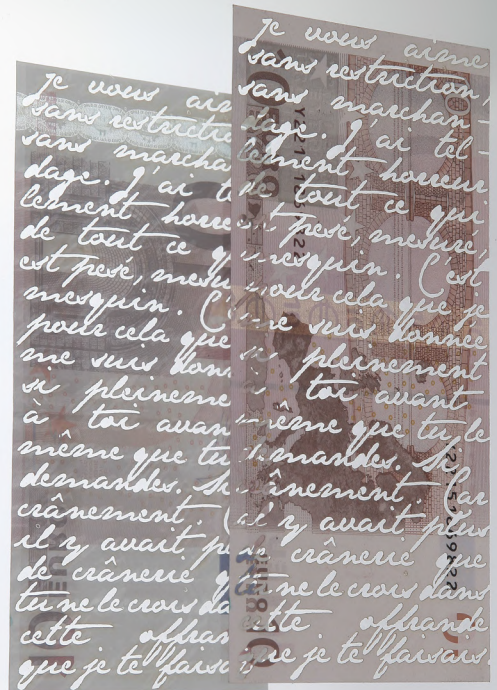 je vous aim
sans restrictio
sans marcha
dage. J'ai t
lement horre
de tout ce q
est pesé, mesu
mesquin. C'
pour cela que
me suis donn
si pleineme
à toi avan
même que tu
demandes. Si
crânement. C
il y avait p
de crânerie q
tu ne le crois da
cette offran
que je te faisa
je vous aime
sans restriction,
sans marchan-
dage. J'ai tel-
lement horreur
de tout ce qui
est pesé, mesuré,
mesquin. C'est
pour cela que je
me suis donnée
si pleinement
à toi avant
même que tu le
demandes. Si
crânement. Car
il y avait plus
de crânerie que
tu ne le crois dans
cette offrande
que je te faisais.